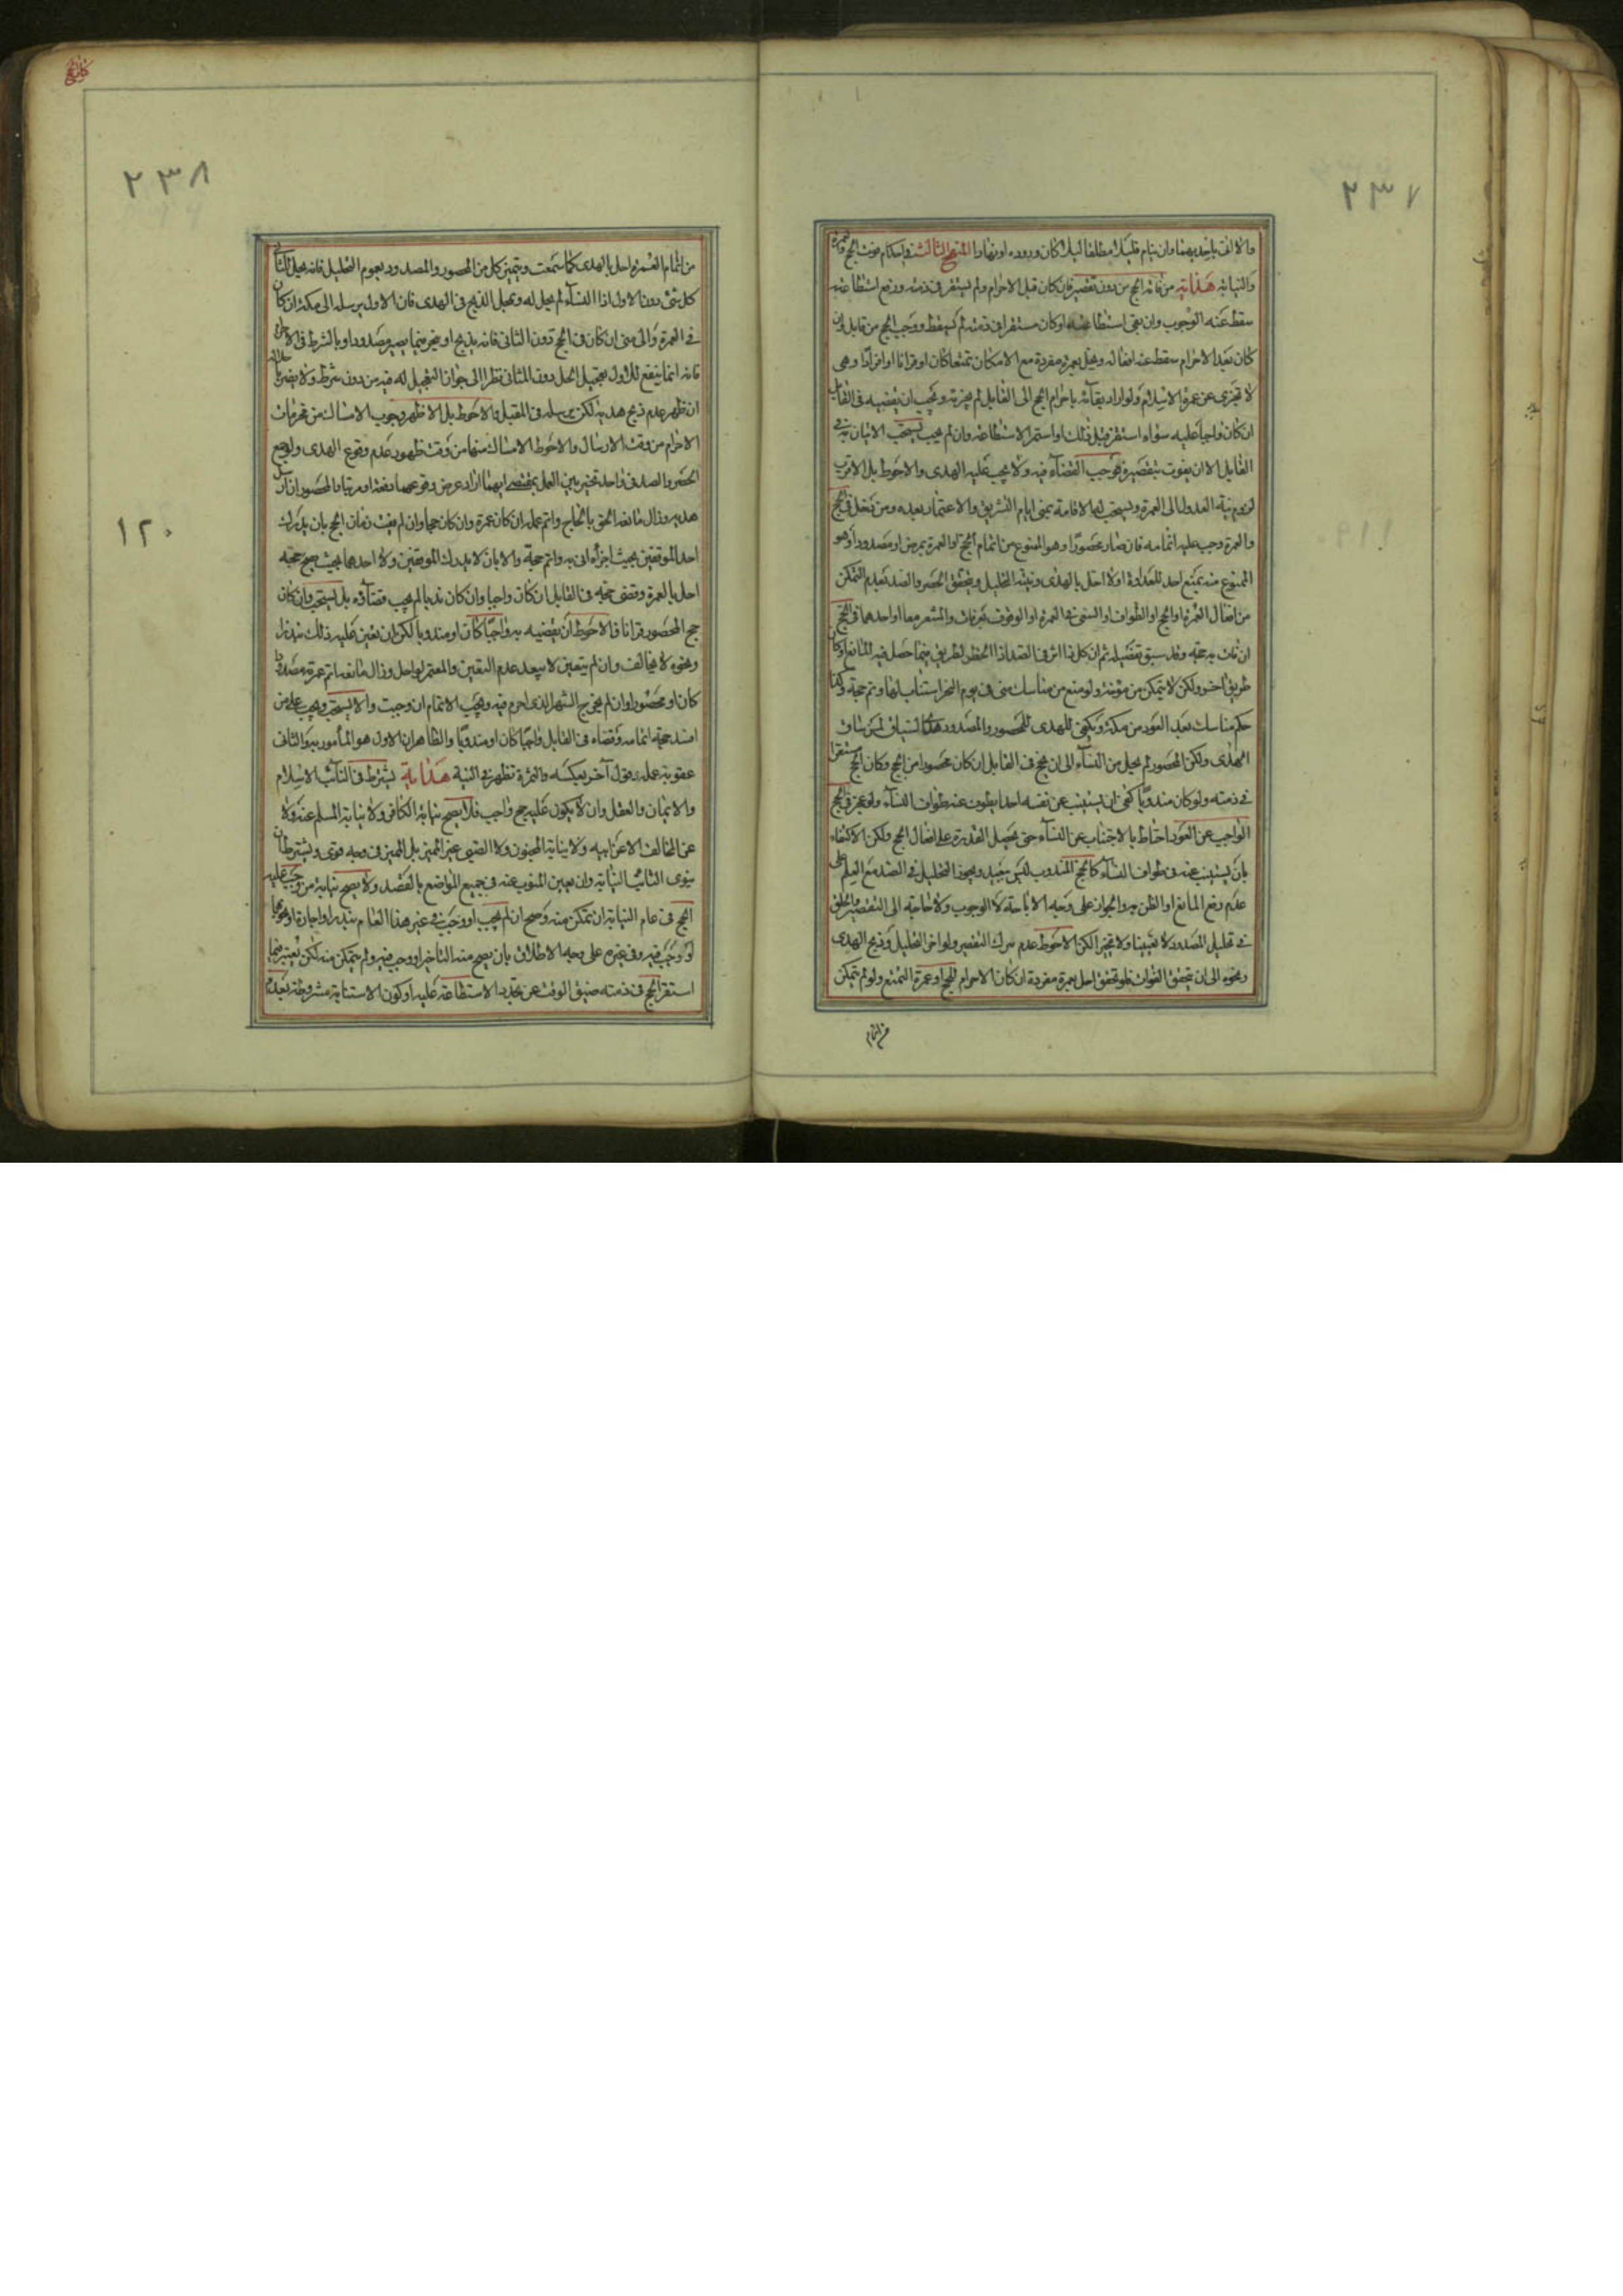 ٢٣٧
والا اتى باحديهما وان ينام قليلا مطلقا ليلا كان وروده او نهارا المنهج الثالث فى احكام فوت الحج والعمرة
والنيابة هداية من فاته الحج من دون تقصير فان كان قبل الاحرام ولم يستقر فى ذمته ورفع استطاعته
سقط عنه الوجوب وان بقى استطاعته او كان مستقرا فى ذمته لم يسقط ووجب الحج من قابل وان
كان بعد الاحرام سقط عنه افعاله ويحل بعمرة مفردة مع الامكان تمتعا كان او قرانا او افرادا وهى
لا تجزى عن عمرة الاسلام ولو اراد بقائه باحرام الحج الى القابل لم يجزيه ويجب ان يقضيه فى القابل
ان كان واجبا عليه سواء استقر قبل ذلك او استمر الاستطاعة وان لم يجب يستحب الاتيان به فى
القابل الا ان يفوت بتقصيره فيوجب القضآء فيه ولا يجب عليه الهدى والاحوط بل الاقرب
لزوم نية العدول الى العمرة ويستحب لها الاقامة بمنى ايام التشريق والاعتمار بعده ومن دخل فى الحج
والعمرة وجب عليه اتمامه فان صار محصورا وهو الممنوع من اتمام الحج او العمرة بمرض او مصدودا وهو
الممنوع منه بمنع احد للعداوة اولا احل بالهدى ونية التحليل ويتحقق الحصر والصد بعدم التمكن
من افعال العمرة او الحج او الطواف او السعى فى العمرة او الوقوف بعرفات والمشعر معا او احدهما فى الحج
ان فات به حجه وقد سبق تفصيله ثم ان كل ذا اثر فى الصد اذا انحصر الطريق فيما حصل فيه المانع او كان
طريق اخر ولكن لا يتمكن من مؤنته ولو منع من مناسك منى فى يوم النحر استناب لها ويتم حجه وكذا
حكم مناسك بعد العود من مكة ويكفى للهدى للمحصور والمصدود هدى السياق لمن ساق
الهدى ولكن المحصور لم يحل من النسآء الى ان يحج فى القابل ان كان محصورا من الحج وكان الحج مستقرا
فى ذمته ولو كان مندوبا كفى ان يستنيب عن نفسه احدا يطوف عنه طواف النسآء ولو عجز فى الحج
الواجب عن العود احتاط بالاجتناب عن النسآء حتى يحصل القدرة على افعال الحج ولكن الاكتفاء
بان يستنيب عنه فى طواف النسآء كالحج المندوب ليس ببعيد ويجوز التحليل فى الصد مع العلم على
عدم رفع المانع او الظن به والجواز على وجه الاباحة لا الوجوب ولا حاجة الى التقصير والحلق
فى تحليل المصدود لا تعيينا ولا تخيير الكن الاحوط عدم ترك التقصير ولو اخر التحليل وذبح الهدى
ونحوه الى ان يتحقق الفوات فلو تحقق احل بعمرة مفردة ان كان الاحرام للحج او عمرة التمتع ولو لم يتمكن
من اتمام
٢٣٨
من اتمام العمرة احل بالهدى كما سمعت ويتميز كل من المحصور والمصدود بعموم التحليل فانه يحل للثانى
كل شئ دون الاول اذا النسآء لم يحل له وبمحل الذبح فى الهدى فان الاول يرسله الى مكة ان كان
فى العمرة والى منى ان كان فى الحج دون الثانى فانه يذبح او ينحر فيما يصير مصدودا وبالشرط فى الاحرام
فانه انما ينفع للاول بتعجيل الحل دون الثانى نظرا الى جواز التعجيل له فيه من دون شرط ولا يضر باحلاله
ان ظهر عدم ذبح هديه لكن يرسله فى المقبل والاحوط بل الاظهر وجوب الامساك من محرمات
الاحرام من وقت الارسال والاحوط الامساك منها من وقت ظهور عدم وقوع الهدى ولو جمع
الحصر والصد فى واحد تخير بين العمل بمقتضى ايهما اراد عرض وقوعهما دفعة او مرتبا والمحصور ان ارسل
هديه وزال مانعه التحق بالحاج واتم عمله ان كان عمرة وان كان حجا وان لم يفت زمان الحج بان يدرك
احد الموقفين بحيث اجزأه اتى به واتم حجه والا بان لا يدرك الموقفين ولا احدهما بحيث يصح حجه
احل بالعمرة وقضى حجه فى القابل ان كان واجبا وان كان ندبا لم يجب قضآؤه بل يستحب وان كان
حج المحصور قرانا فالاحوط ان يقضيه به واجبا كان او مندوبا لكن ان تعين عليه ذلك بنذر
ونحوه لا يخالف وان لم يتعين لا يبعد عدم التعين والمعتمر لو احل وزال مانعه اتم عمرته مصدودا
كان او محصورا وان لم يخرج الشهر الذى احرم فيه ويجب الاتمام ان وجبت والا يستحب ويجب على من
افسد حجه اتمامه وقضاه فى القابل واجبا كان او مندوبا والظاهر ان الاول هو المأمور به والثانى
عقوبة عليه وقول آخر بعكسه والثمرة تظهر فى النية هداية يشترط فى النائب الاسلام
والايمان والعقل وان لا يكون عليه حج واجب فلا يصح نيابة الكافر ولا نيابة المسلم عنه ولا
عن المخالف الا عن ابيه ولا نيابة المجنون ولا الصبى غير المميز بل المميز فى وجه قوى ويشترط ان
ينوى النائب النيابة وان يعين المنوب عنه فى جميع المواضع بالقصد ولا يصح نيابة من وجب عليه
الحج فى عام النيابة ان تمكن منه وصح ان لم يجب او وجب فى غير هذا العام بنذر او اجارة او نحوها
او وجب فيه وفى غيره على وجه الاطلاق بان يصح منه التاخير او وجب فيه ولم يتمكن منه لكن يعتبر فيما
استقر الحج فى ذمته ضيق الوقت عن تجدد الاستطاعة عليه او كون الاستنابة مشروطة بعدم
١٢٠